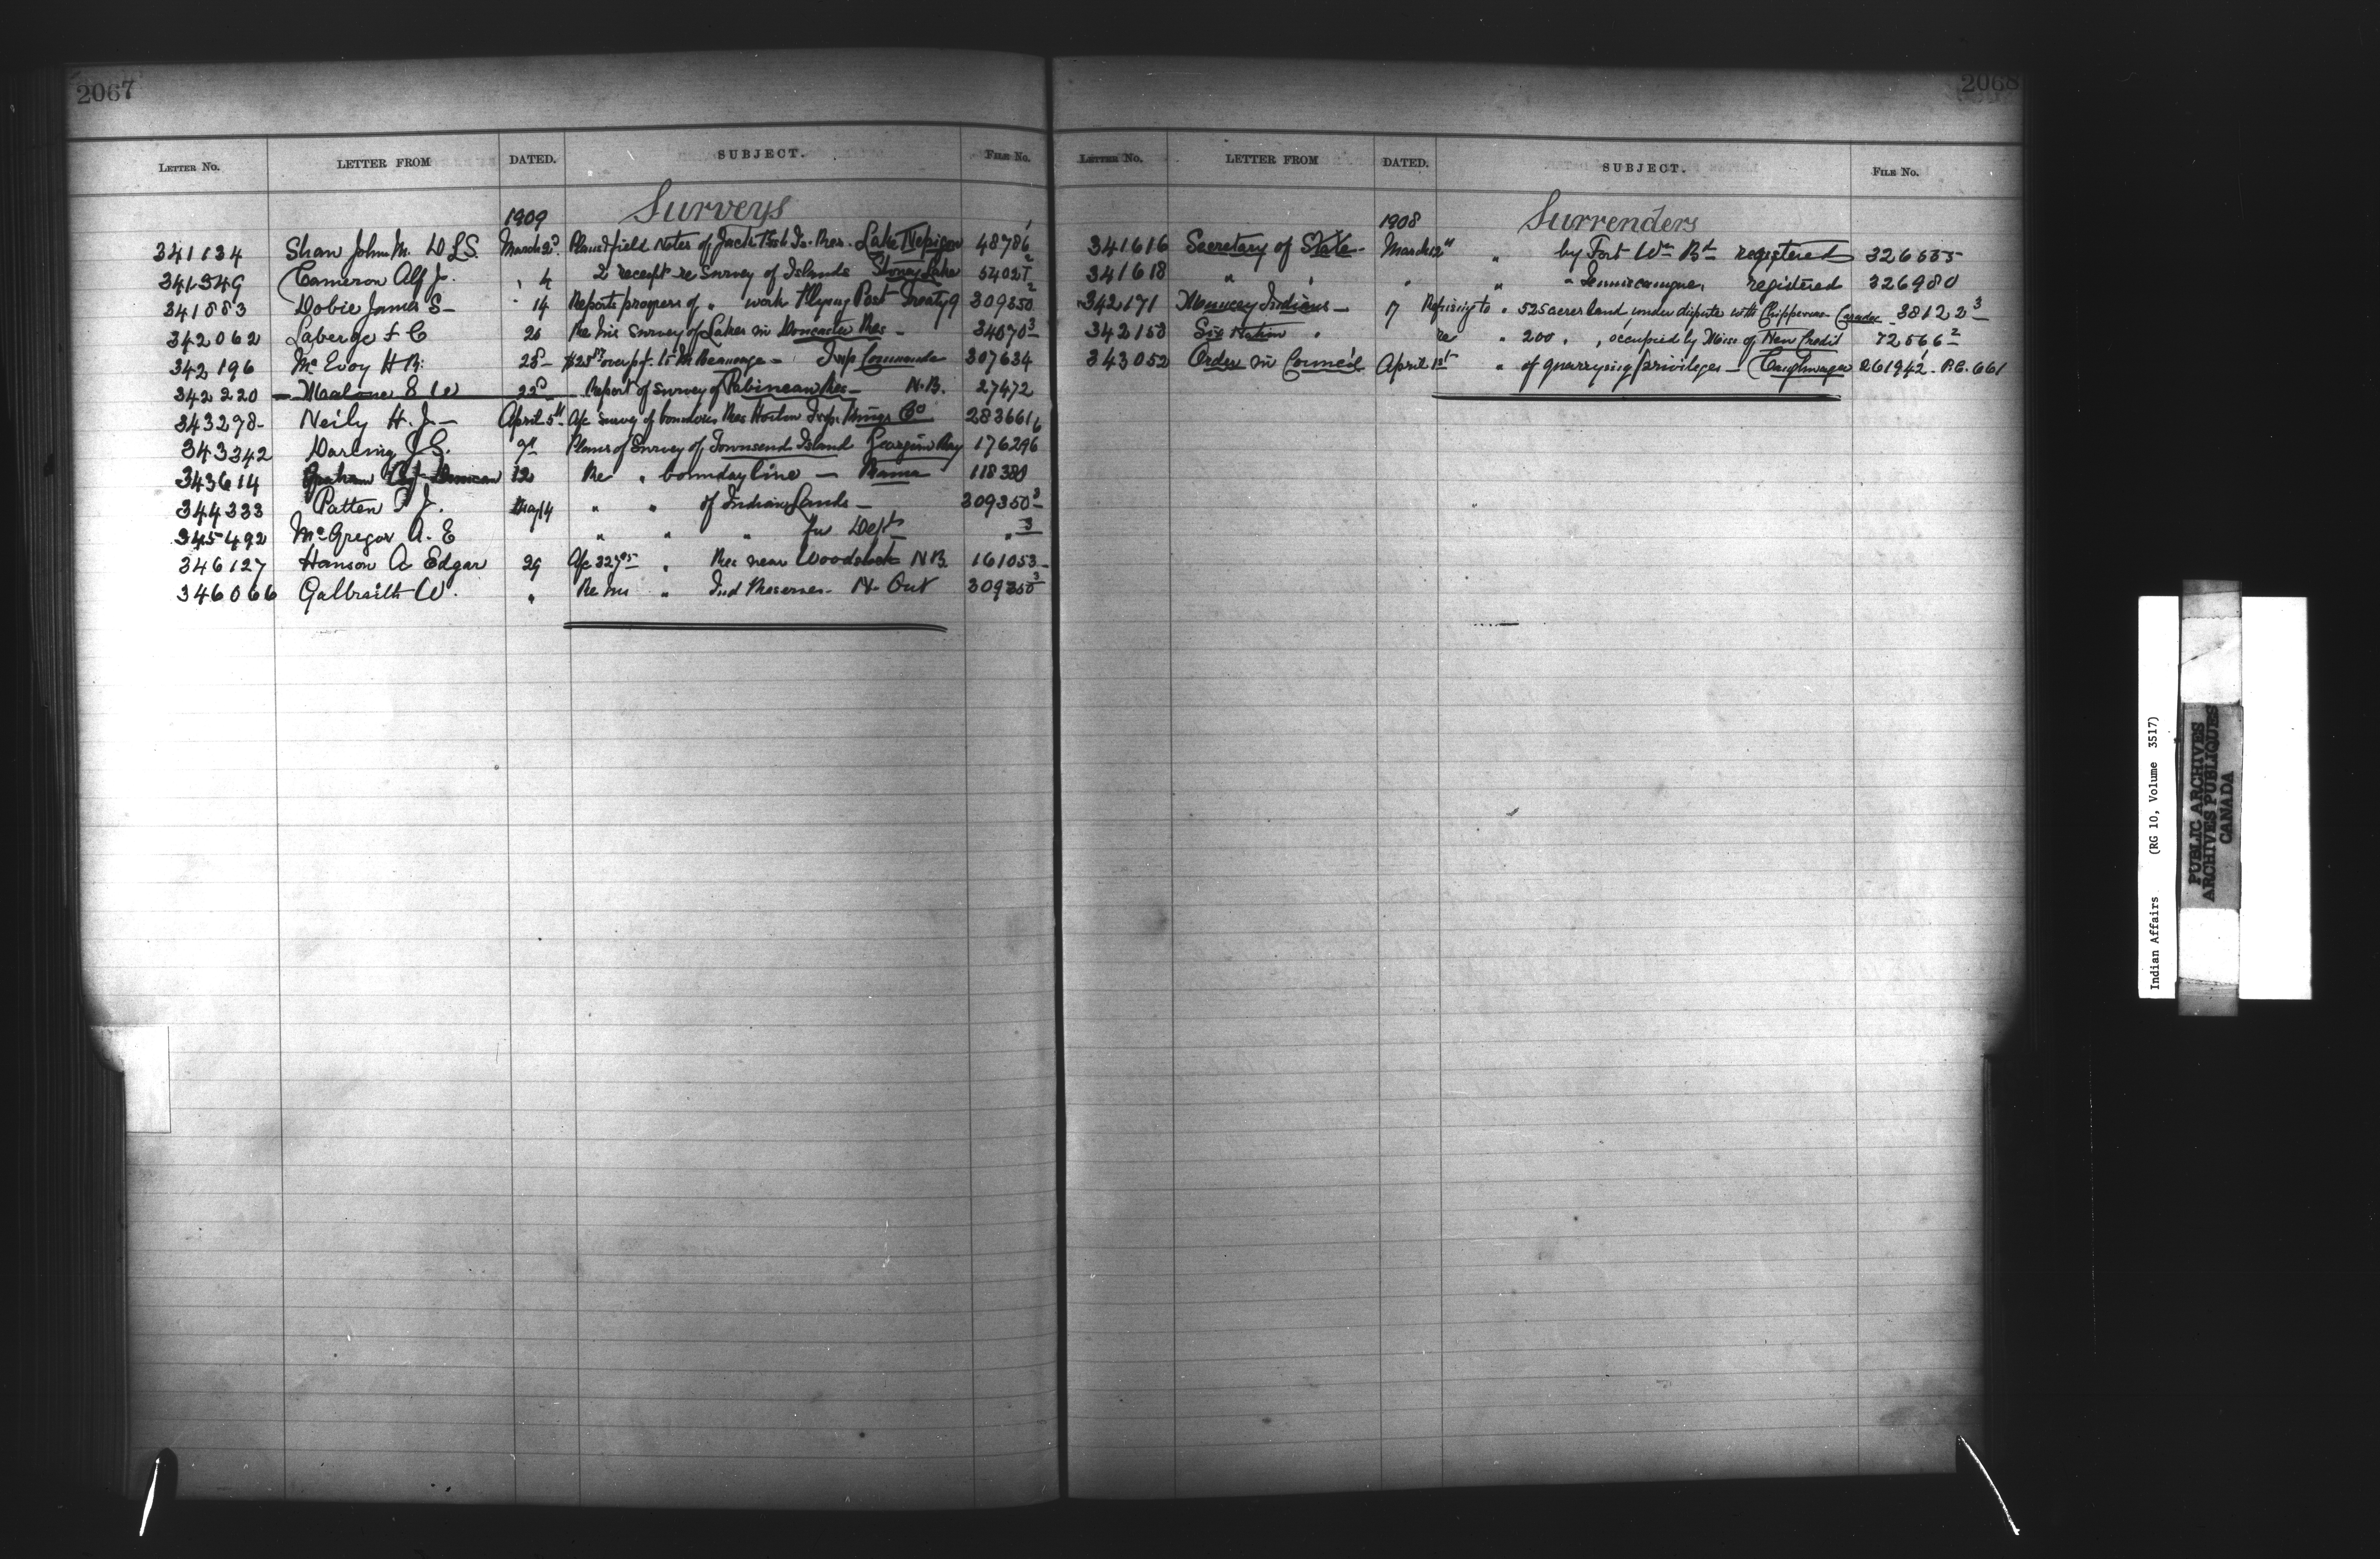 2067
LETTER NO. LETTER FROM DATED. SUBJECT. FILE NO.
1909 Surveys
341134 Shaw John M. DLS. March 2d Plan & field Notes of Jack Fish In. Res. Lake Nepigon 48786 1
341349 Cameron Alf J. " 4 2 receipts re Survey of Islands Stoney Lake 54027 2
341883 Dobie James S- " 14 Reports progress of " work Flying Post Treaty 9 309350 2
342062 Laberge F C 20 Re his survey of Lakes in Doncaster Res - 34070 3
342196 McEvoy H R. over pt. to Commanda 307634
342220 Malone E W 22d Report of survey of Pabineau Res - N.B. 27472
343298- Neily H. J- April 5th A/c survey of boundries Res Horton Kings Co 283661
343342 Darling J.S. 9th Plans of Survey of Townsend Island Georgian Bay 176296
343614 12 Re " boundary line - Rama 118380
344333 Patten T J. May 14 " " of Indian Lands - 309350 3
345492 McGregor A. E " " " for Dept " 3
346127 Hanson A Edgar 29 A/c " Res near Woodstock N.B. 161053-
346066 Galbraith W. " Re his " Ind Reserves - N. Ont 309350 3
2068
LETTER NO. LETTER FROM DATED. SUBJECT. FILE NO.
1908 Surrenders
341616 Secretary of State- March 12th " by Fort Wm Bd registered
341618 " " " " " Temiscamingue, registered 326980
342171 Muncey Indians - 17 Refusing to " 525 acres land, under dispute with Chippewas Caradoc 38122 3
342153 Six Nation " re " 200 " , occupied by Miss of New Credit 72566 2
343052 Order in Council April 1st " of quarrying privileges - Caughnawaga 261942. P.C. 661
Indian Affairs (RG 10, Volume 3517)
PUBLIC ARCHIVES
ARCHIVES PUBLIQUES
CANADA